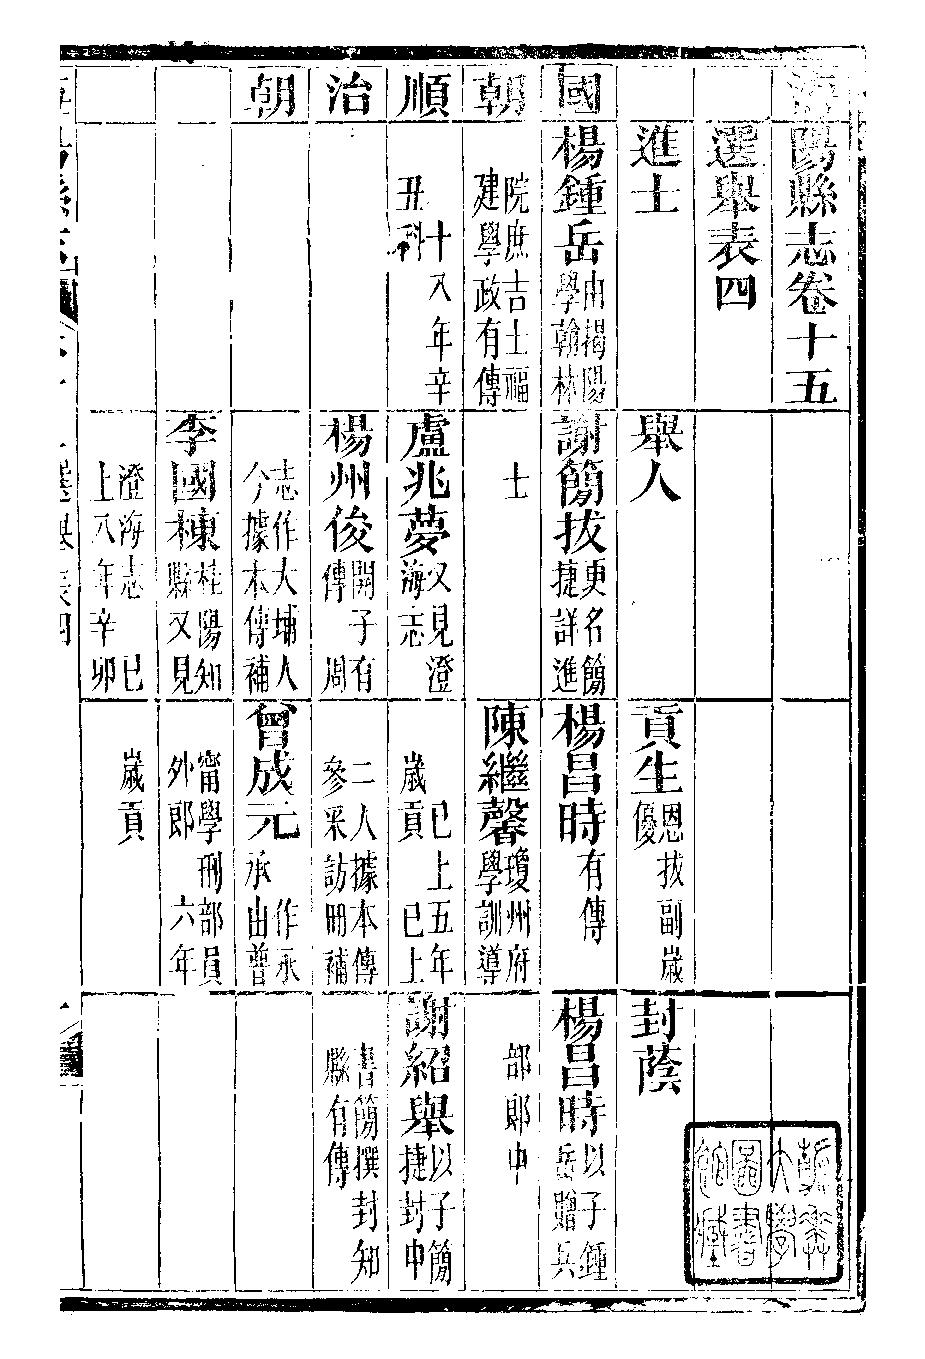 海陽縣志卷十五
選舉表四
進士
舉人
貢生恩拔副歲優
封蔭
國
楊鍾岳由揭陽學翰林
謝簡拔更名簡捷詳進
楊昌時有傳
楊昌時以子鍾岳贈兵
朝
院庶吉士福建學政有傳
士
陳繼馨瓊州府學訓導
部郎中
順
十八年辛丑科
盧兆夢又見澄海志
已上五年歲貢已上
謝紹舉以子簡捷封中
治
楊州俊開子有傳周
二人據本傳參采訪冊補
書簡撰封知縣有傳
朝
志作大埔人今據本傳補
曾成元作承承由普
李國棟桂陽知縣又見
甯學刑部員外郎六年
澄海志已上八年辛卯
歲貢